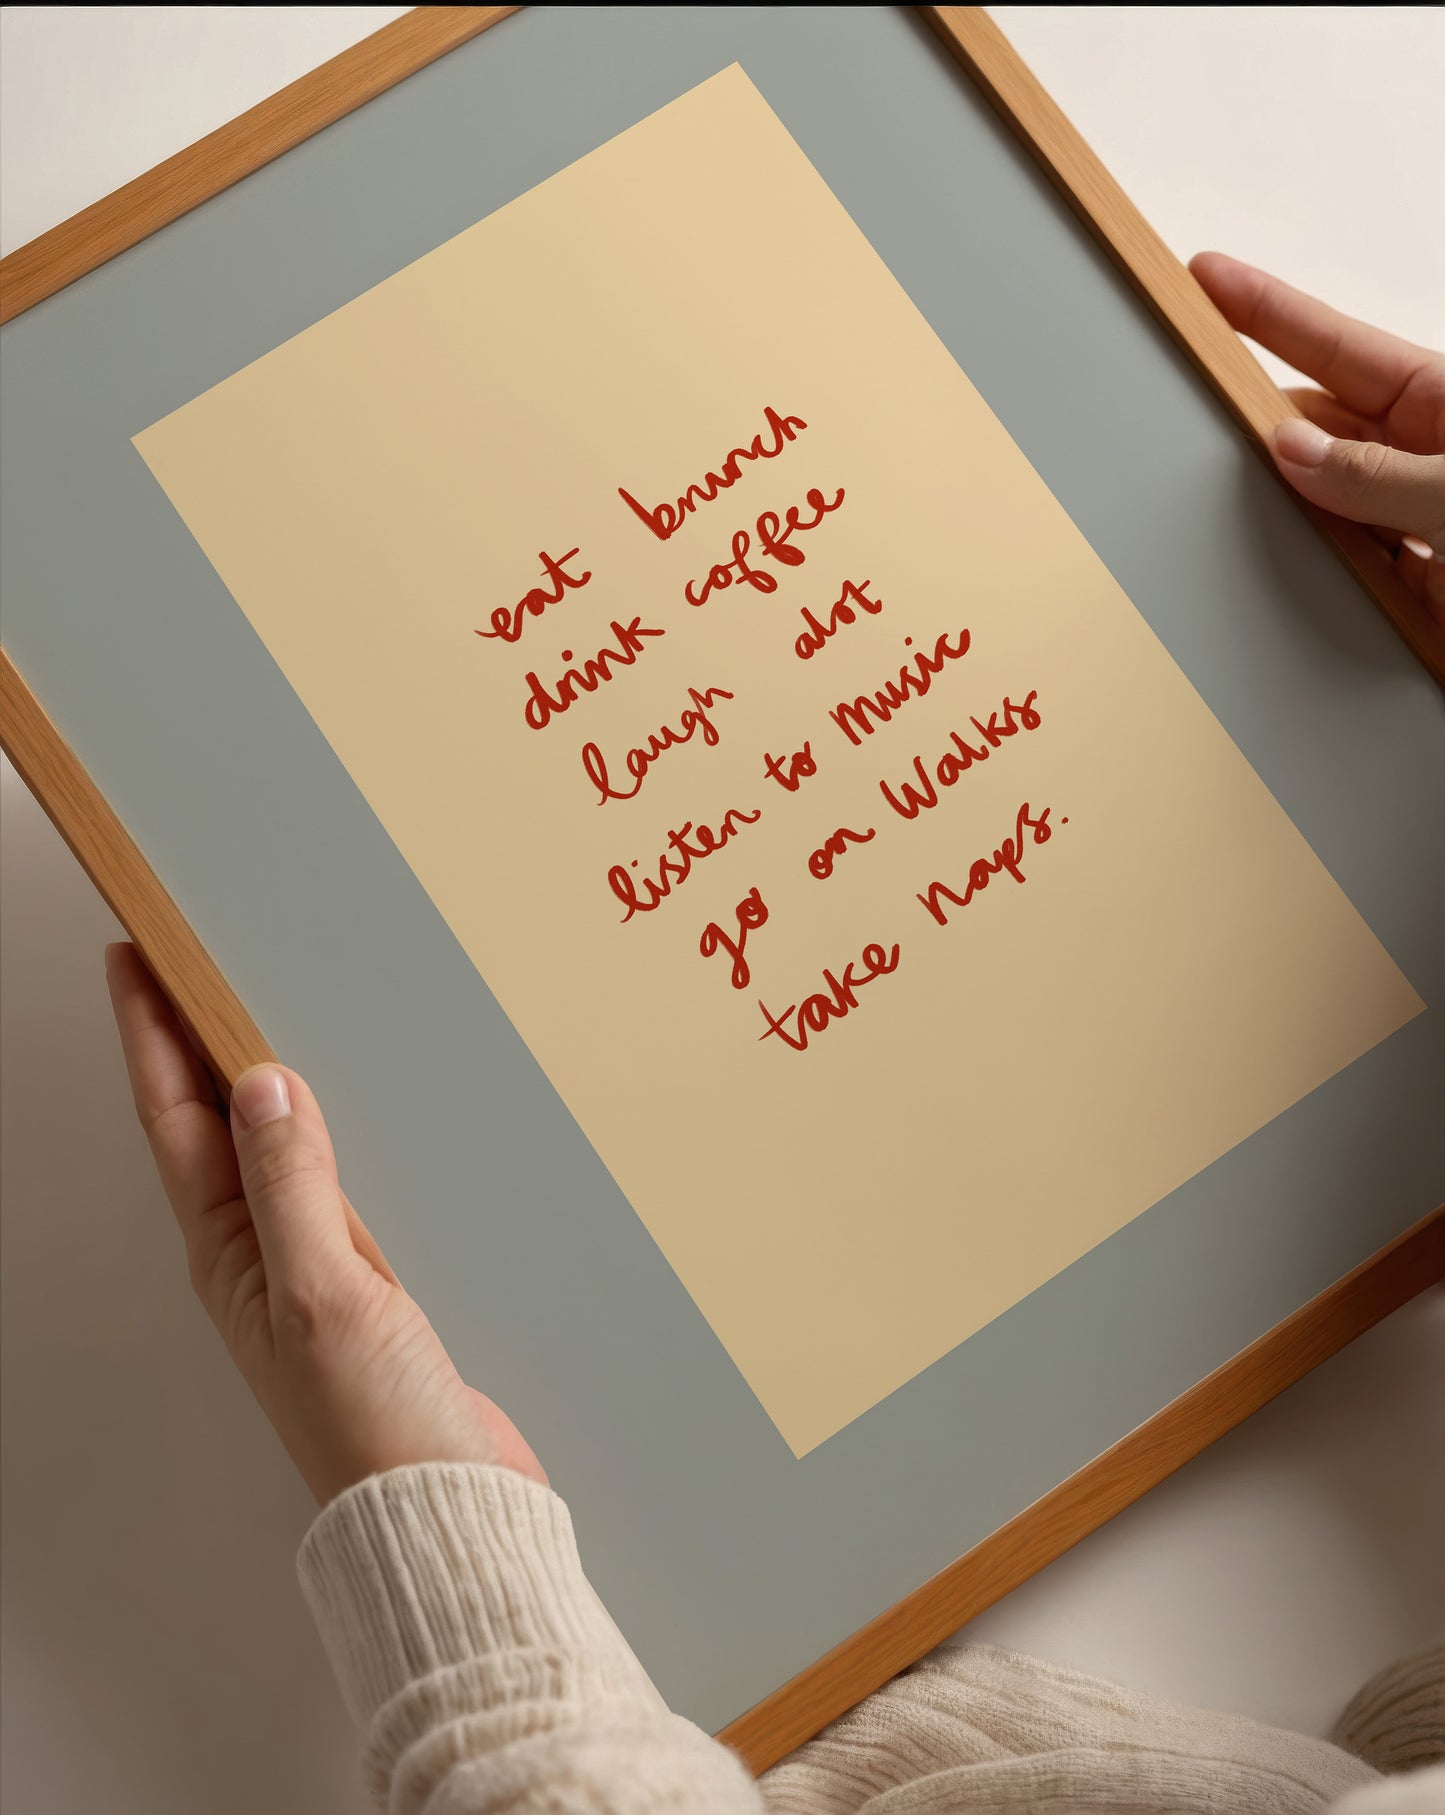 eat brunch
drink coffee
laugh alot
listen to music
go on Walks
take naps.